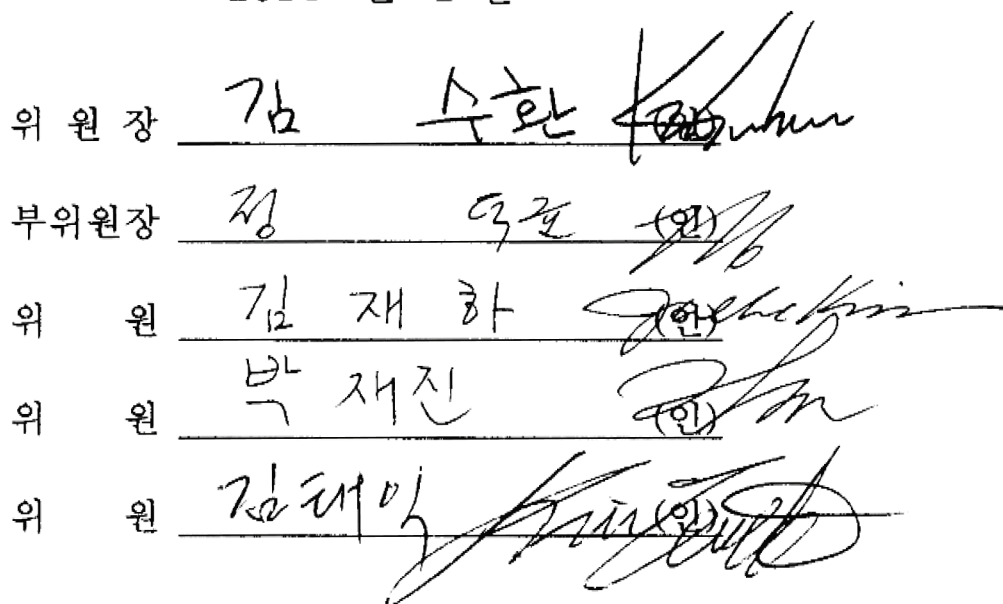 위 원 장 김 수환 (인)
부위원장 정 덕균 (인)
위 원 김 재 하 (인)
위 원 박 재진 (인)
위 원 김태익 (인)